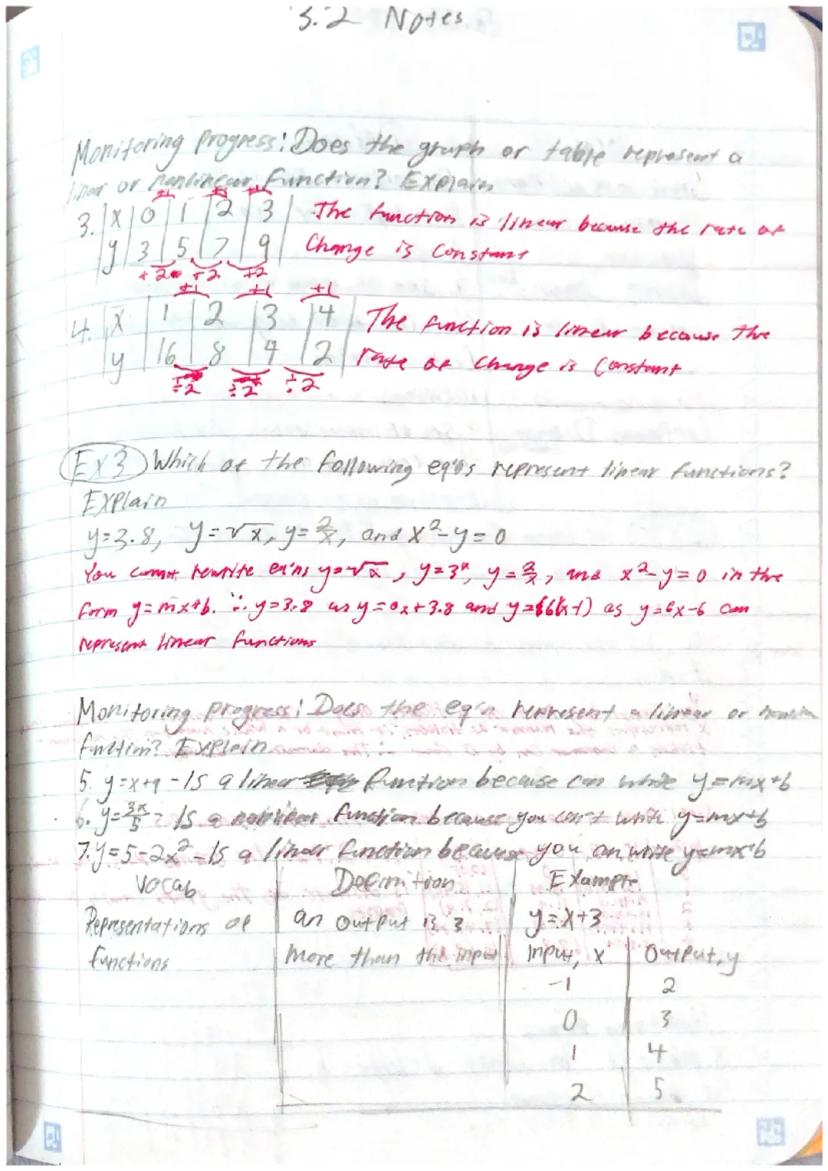 3.2 Notes
Monitoring Progress: Does the graph or table represent a
linear or nonlinear function? Explain
+1 +1 +1
3. x 0 1 2 3 The function is linear because the rate of
y 3 5 7 9 Change is Constant
+2 +2 +2
+1 +1 +1
4. x 1 2 3 4 The function is linear because the
y 16 8 4 2 rate of change is Constant
÷2 ÷2 ÷2
Ex3 Which of the following eq'ns represent linear functions?
Explain
y=3.8, y=√x, y=2/x, and x²-y=0
You cannot rewrite eq'ns y=√x, y=3ˣ, y=2/x, and x²-y=0 in the
form y=mx+b. ∴ y=3.8 as y=0x+3.8 and y=6(x-1) as y=6x-6 can
represent linear functions
Monitoring Progress: Does the eq'n represent a linear or nonlinear
function? Explain
5. y=x+9 - Is a linear function because can write y=mx+b
6. y=3x/5 - Is a nonlinear function because you can't write y=mx+b
7. y=5-2x² - Is a linear function because you can write y=mx+b
Vocab Definition Example
Representations of an output is 3 y=x+3
functions more than the input Input, x Output, y
-1 2
0 3
1 4
2 5